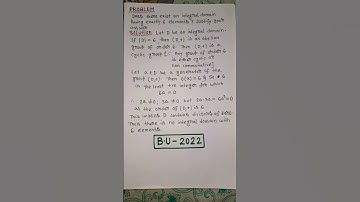 PROBLEM
Does there exist an integral domain
having exactly 6 elements? Justify your
answer.
Solution: Let D be an integral domain.
If |D| = 6. Then (D,+) is an abelian
group of order 6. Then (D,+) is a
cyclic group [∵ Any group of order 6
is either cyclic or
non commutative]
Let a ∈ D be a generator of the
group (D,+). Then O(a) = 6 &
is the least +ve integer for which
6a = 0
∴ 2a ≠ 0, 3a ≠ 0 but 2a·3a = 6a² = 0
as the order of (D,+) is 6.
This implies D contains divisors of zero
Thus there is no integral domain with
6 elements.
B.U-2022